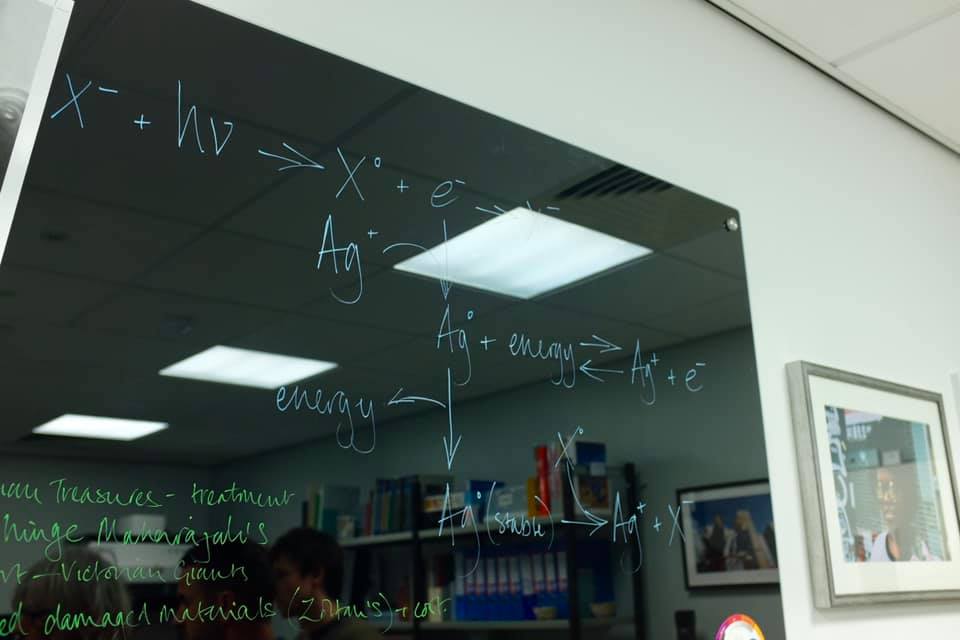 X⁻ + hν → X° + e⁻ → X⁻
Ag⁺
Ag° + energy ⇌ Ag⁺ + e⁻
energy
X°
Ag° (stable) → Ag⁺ + X⁻
Treasures - treatment
hinge Maharajah's
- Victorian Giants
damaged materials (Zoltan's) + cost